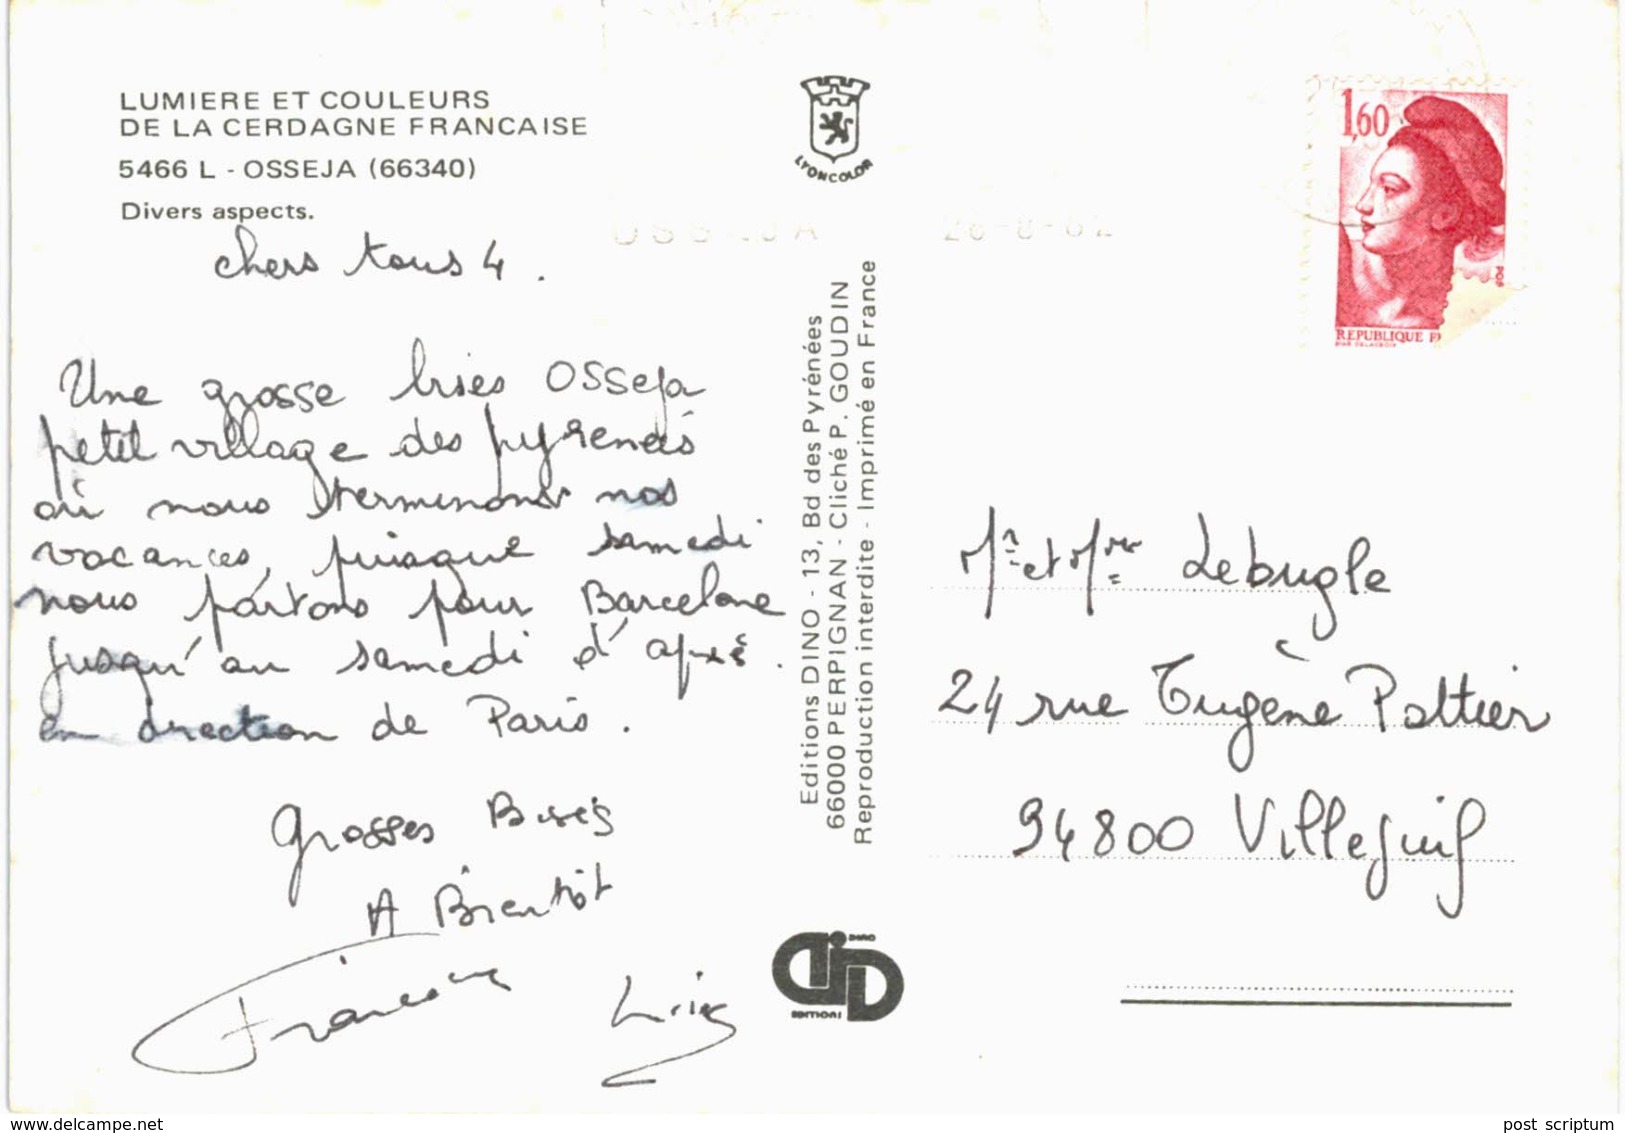 LUMIERE ET COULEURS
DE LA CERDAGNE FRANCAISE
5466 L - OSSEJA (66340)
Divers aspects.
chers tous 4.
Une grosse bises Osseja
petit village des pyrenées
où nous terminons nos
vacances, puisque samedi
nous partons pour Barcelone
jusqu'au samedi d'après.
en direction de Paris.
Grosses Bises
A Bientôt
LYONCOLOR
OSSEJA 28-8-82
Editions DINO - 13, Bd des Pyrénées
66000 PERPIGNAN - Cliché P. GOUDIN
Reproduction interdite - Imprimé en France
DINO
EDITIONS
1,60
REPUBLIQUE F
Mr et Mme Lebugle
24 rue Eugène Pottier
94800 Villejuif
www.delcampe.net
post scriptum